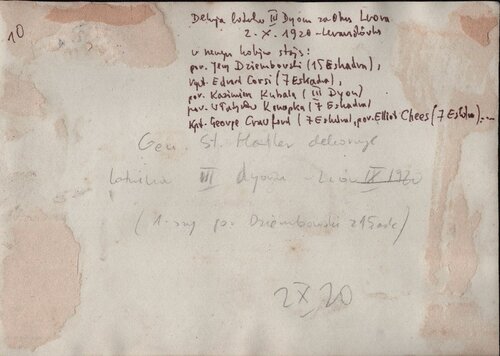 10
Dekoracja lotników III Dyonu za obronę Lwowa
2. X. 1920 - Lewandówka
W pierwszym kolejno stoją:
por. Jerzy Dziembowski (15 Eskadra),
kpt. Edward Corsi (7 Eskadra),
por. Kazimierz Kubala (III Dyon)
por. Władysław Konopka (7 Eskadra)
kpt. George Crawford (7 Eskadra), por. Elliot Chees (7 Eskadra)...
Gen. St. Haller dekoruje
lotnika III Dyonu - Lwów IX 1920
(1-szy por. Dziembowski z 15 esk)
2 X 20